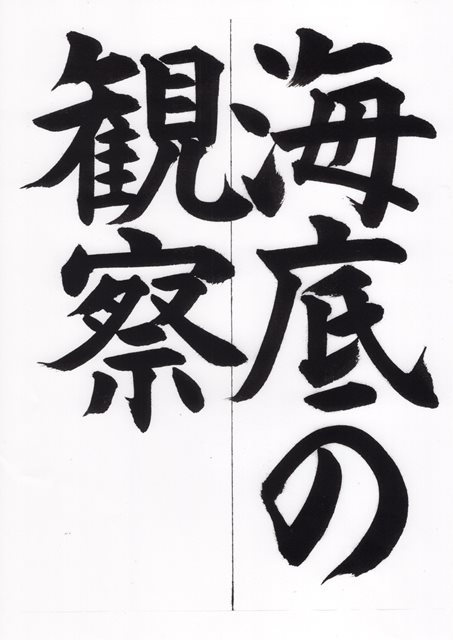 海底の
観察